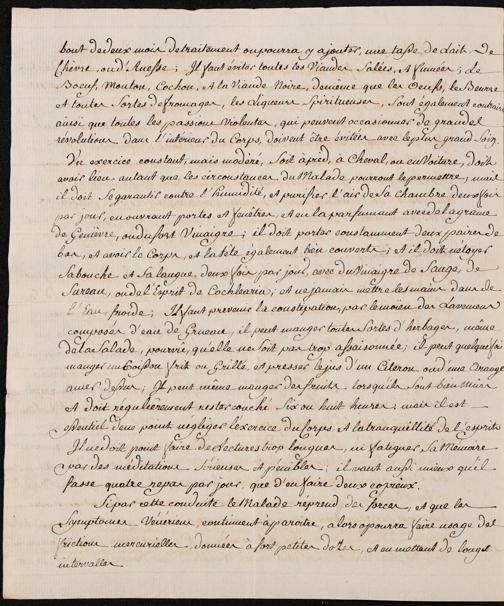 bout de deux mois de traitement on pourra y ajouter, une tasse de lait de
Chèvre, ou d'Anesse; Il faut éviter toutes les Viandes Salées, et fumées; Le
Boeuf, Mouton, Cochon, et la Viande Noire, de même que les Oeufs, le Beurre
et toutes Sortes de fromages, les Liqueurs Spiritueuses, sont également contraires
ainsi que toutes les passions Violentes, qui peuvent occasionner de grandes
révolutions dans l'intérieur du Corps, doivent être évitées avec le plus grand Soin.
Un exercice constant, mais modéré, Soit à pied, à Cheval, ou en Voiture, doit
avoir lieu autant que les circonstances du Malade pourront le permettre, mais
il doit Se garantir contre l'humidité, et purifier l'air de Sa chambre deux fois
par jour, en ouvrant portes et fenêtres, et en la parfumant avec de la graine
de Genièvre, ou du fort Vinaigre; il doit porter constamment deux paires de
bas, et avoir le Corps, et la tête également bien couverts; et il doit netoyer
Sa bouche et Sa langue, deux fois par jour, avec du Vinaigre de Sauge, de
Sureau, ou de l'Esprit de Cochlearia; et ne jamais mettre les mains dans de
l'Eau froide; Il faut prevenir la constipation, par le moïen des Lavemens
composés d'eau de Gruau, il peut manger toutes Sortes d'herbages, même
de la Salade, pourvu, qu'elle ne Soit pas trop assaisonnée; il peut quelques fois
manger un Poisson frit ou Grillé, et presser le jus d'un Citron ou d'une Orange
amer dessus; Il peut même manger des fruits lorsqu'ils Sont bien Murs
et doit régulièrement rester couché Six ou huit heures; mais il est
essentiel de ne point négliger l'exercice du Corps et la tranquillité de l'esprit.
Il ne doit point faire de Lectures trop longues, ni fatiguer Sa Mémoire
par des méditations Sérieuses et penibles; il vaut aussi mieux qu'il
fasse quatre repas par jour, que d'en faire deux copieux.
Si par cette conduite le Malade réprend des forces, et que les
Symptomes Vénériens, continuent à paroitre, alors on pourra faire usage des
frictions mercurielles, données à fort petites doses, et en mettant de longs
intervalles